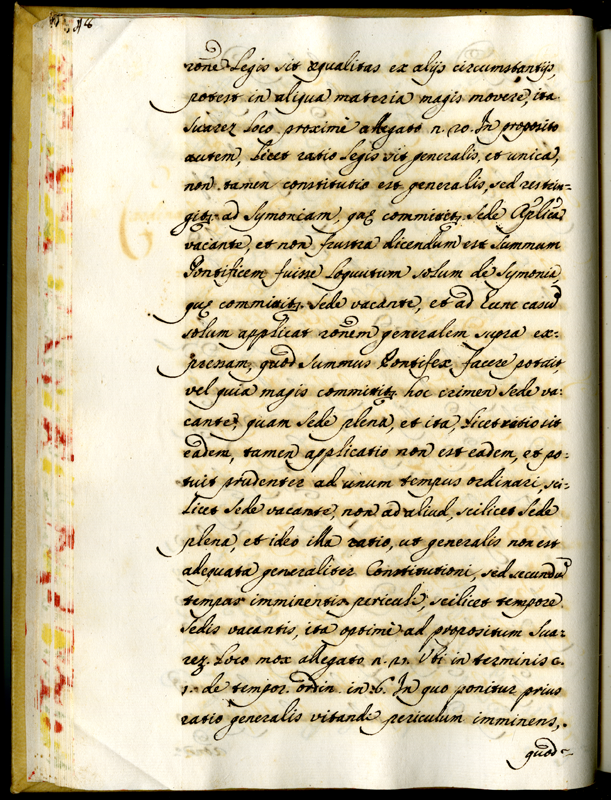 48
rone Legis sit æqualitas ex alijs circumstantijs,
potest in aliqua materia magis movere, ita
Suarez Loco proximè allegato n. 20. In proposito
autem, Licet ratio Legis sit generalis, et unica,
non tamen constitutio est generalis, sed restrin-
gitr ad Symoniam, quæ committitr Sede Aplica
vacante, et non frustra dicendum est Summum
Pontificem fuisse Loquutum solum de Symonia,
quæ committitr Sede vacante, et ad hunc casum
solum applicat ronem generalem supra ex-
pressam, quod Summus Pontifex facere potuit,
vel quia magis committitr hoc crimen Sede va-
cante, quam Sede plena, et ita Licet ratio sit
eadem, tamen applicatio non est eadem, et po-
tuit prudenter ad unum tempus ordinari, sci-
licet Sede vacante, non ad aliud, scilicet Sede
plena, et ideo illa ratio, ut generalis non est
adequata generaliter Constitutioni, sed secundum
tempus imminentis periculi, scilicet tempore
Sedis vacantis, ita optimè ad propositum Sua-
rez Loco mox allegato n. 21. Ubi in terminis c.
1. de tempor. ordin. in 6. In quo ponitur prius
ratio generalis vitandi periculum imminens,
quod